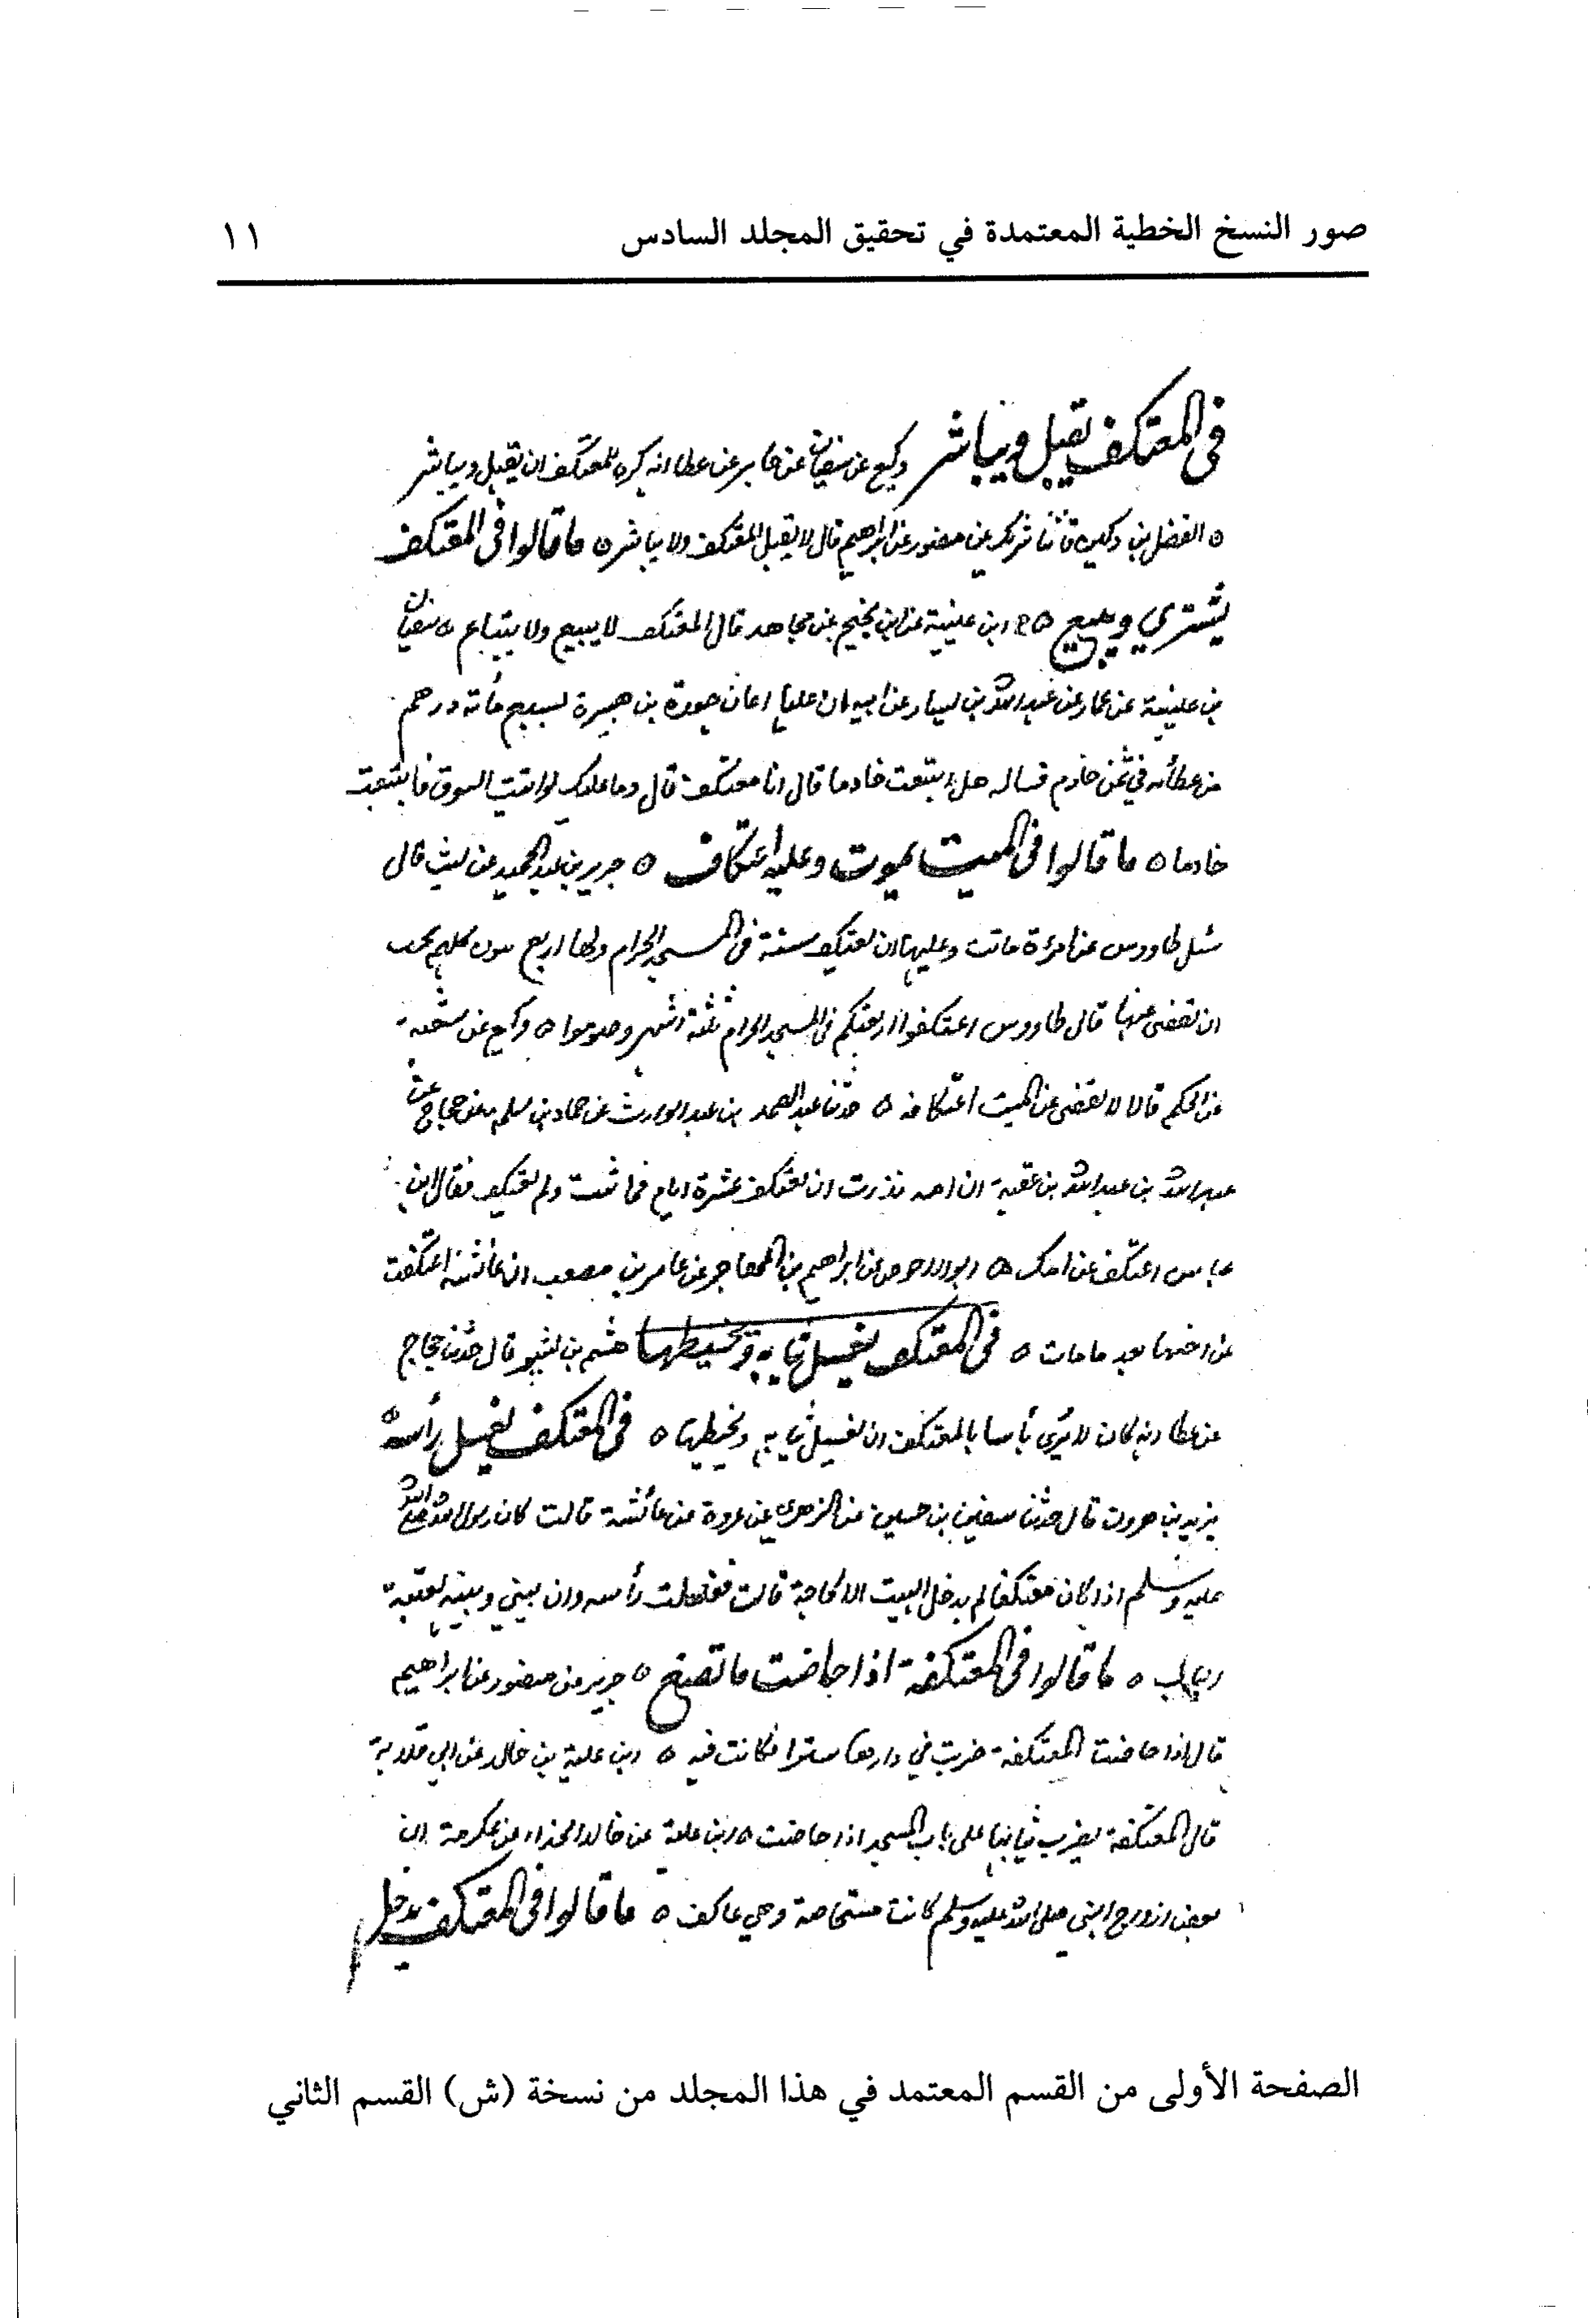 صور النسخ الخطية المعتمدة في تحقيق المجلد السادس ١١
في المعتكف يقبل ويباشر وكيع عن سفيان عن جابر عن عطا انه كره للمعتكف ان يقبل ويباشر
٥ الفضل بن دكين قال ثنا شريك عن منصور عن ابراهيم قال لا يقبل المعتكف ولا يباشر ٥ ما قالوا في المعتكف
يشتري ويبيع ٥ ابن عيينة عن ابن نجيح عن مجاهد قال المعتكف لا يبيع ولا يبتاع ٥ سفيان
بن عيينة عن عمار عن عبد الله بن يسار عن ابيه ان عليا اعان جعدة بن هبيرة بسبع مأته درهم
من عطائه في ثمن خادم فساله هل ابتعت خادما قال انا معتكف قال وما عليك لو اتيت السوق فابتعت
خادما ٥ ما قالوا في الميت يموت وعليه اعتكاف ٥ جرير بن عبد الحميد عن ليث قال
سئل طاووس عن امرءة ماتت وعليها ان تعتكف سنة في المسجد الحرام ولها اربع بنون كلهم يحب
ان يقضى عنها قال طاووس اعتكفوا اربعتكم في المسجد الحرام ثلثة اشهر وصوموا ٥ وكيع عن شعبة
عن الحكم قالا لا يقضى عن الميت اعتكافه ٥ حدثنا عبد الصمد بن عبد الوارث عن حماد بن سلمه عن حجاج عن
عبد الله بن عبد الله بن عقبة ان امه نذرت ان تعتكف عشرة ايام فماتت ولم تعتكف فقال ابن
عباس اعتكف عن امك ٥ ابو الاحوص عن ابراهيم بن المهاجر عن عامر بن مصعب ان عائشة اعتكفت
عن اخيها بعد ما مات ٥ في المعتكف يغسل ثيابه ويخيطها هشيم بن بشير قال حدثنا حجاج
عن عطا انه كان لا يرى بأسا بالمعتكف ان يغسل ثيابه ويخيطها ٥ في المعتكف يغسل رأسه
يزيد بن هرون قال حدثنا سفين بن حسين عن الزهري عن عروة عن عائشة قالت كان رسول الله صلى الله
عليه وسلم اذا كان معتكفا لم يدخل البيت الا لحاجة قالت فغسلت رأسه وان بيني وبينه لعتبة
الباب ٥ ما قالوا في المعتكفة اذا حاضت ما تصنع ٥ جرير عن منصور عن ابراهيم
قال اذا حاضت المعتكفة ضربت في دارها سترا فكانت فيه ٥ ابن علية بن خالد عن ابي قلابة
قال المعتكفة يضرب ثيابها على باب المسجد اذا حاضت ٥ ابن علية عن خالد الحذاء عن عكرمة ان
بعض ازواج النبي صلى الله عليه وسلم كانت مستحاضة وهي عاكف ٥ ما قالوا في المعتكف يدخل
الصفحة الأولى من القسم المعتمد في هذا المجلد من نسخة (ش) القسم الثاني